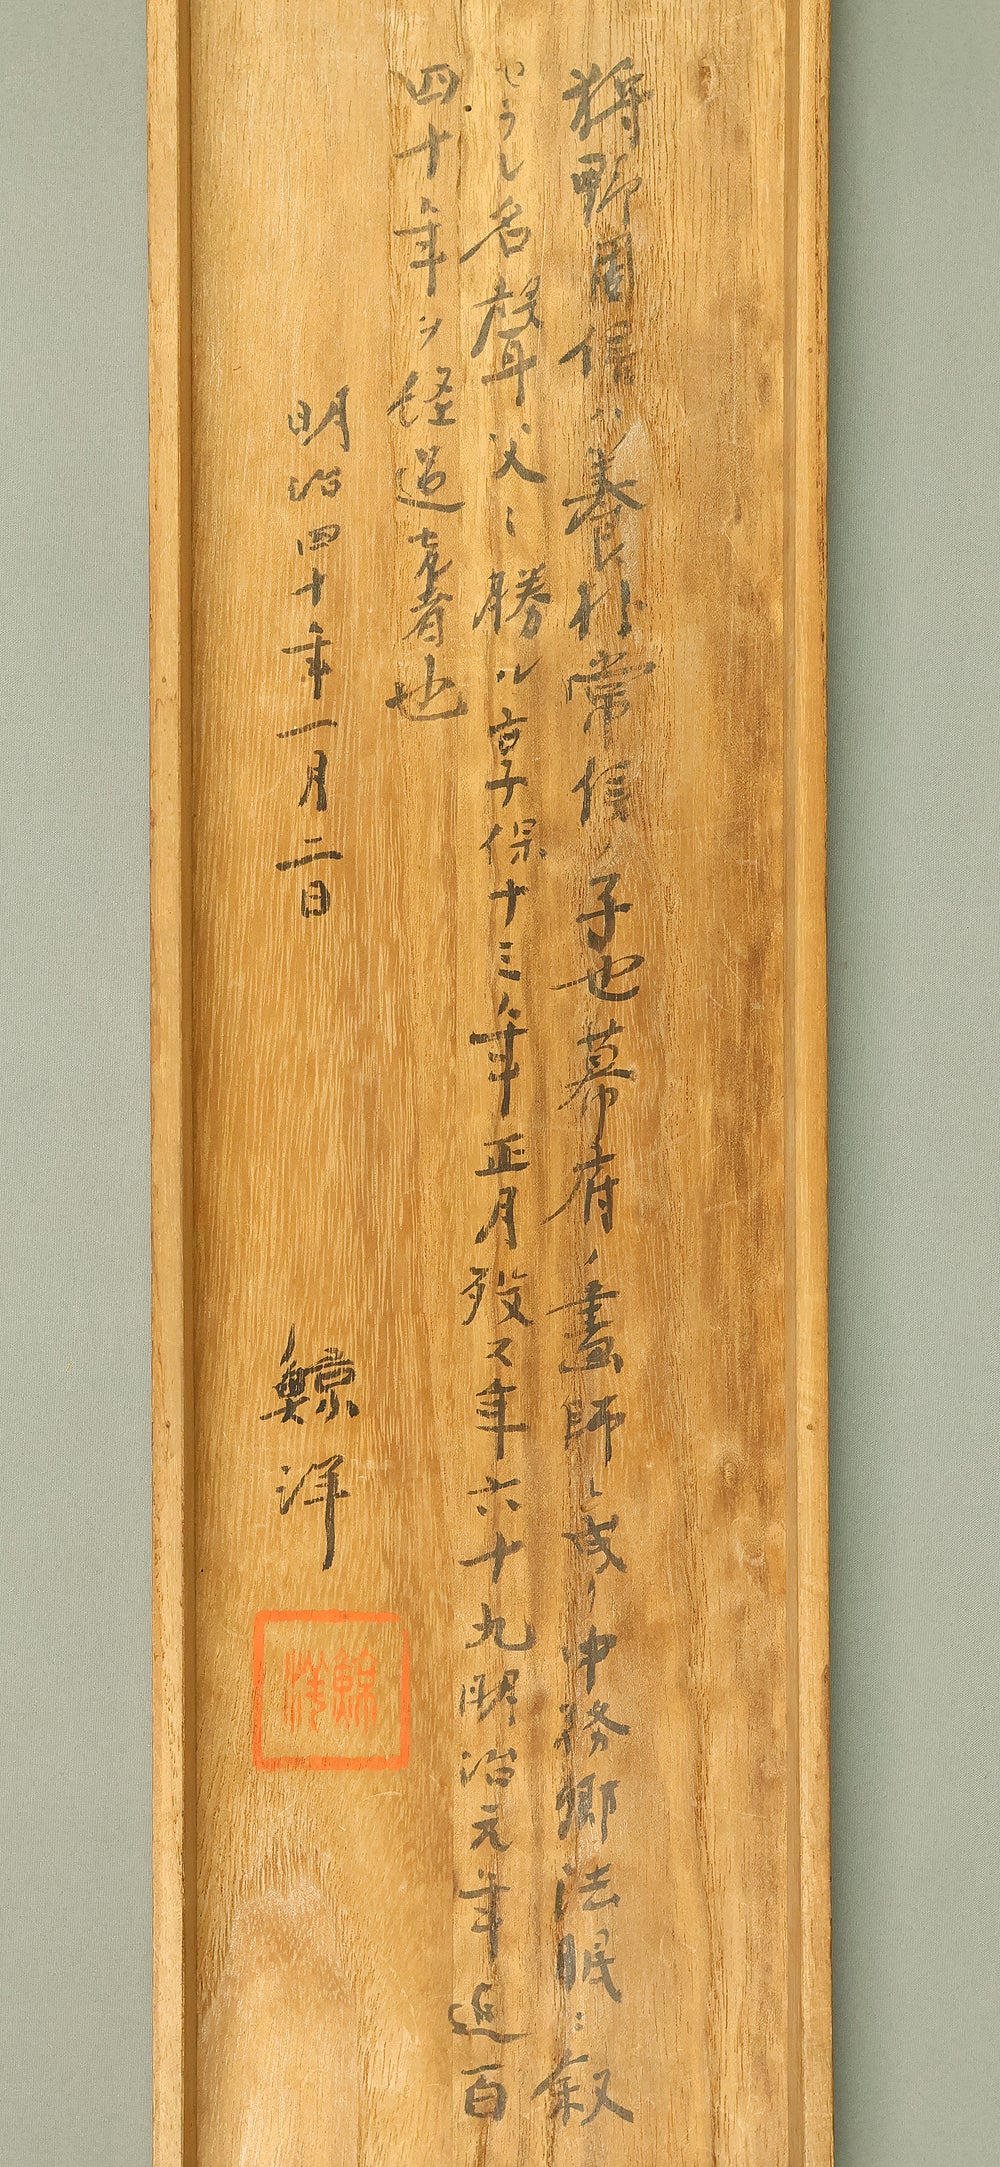 狩野周信ハ養朴常信ノ子也幕府ノ畫師ト成リ中務卿法眼ニ叙
せらし名聲父ニ勝ル享保十三年正月歿ス年六十九明治元年迠百
四十年ヲ経過走者也
明治四十年一月二日
鯨洋
鯨洋